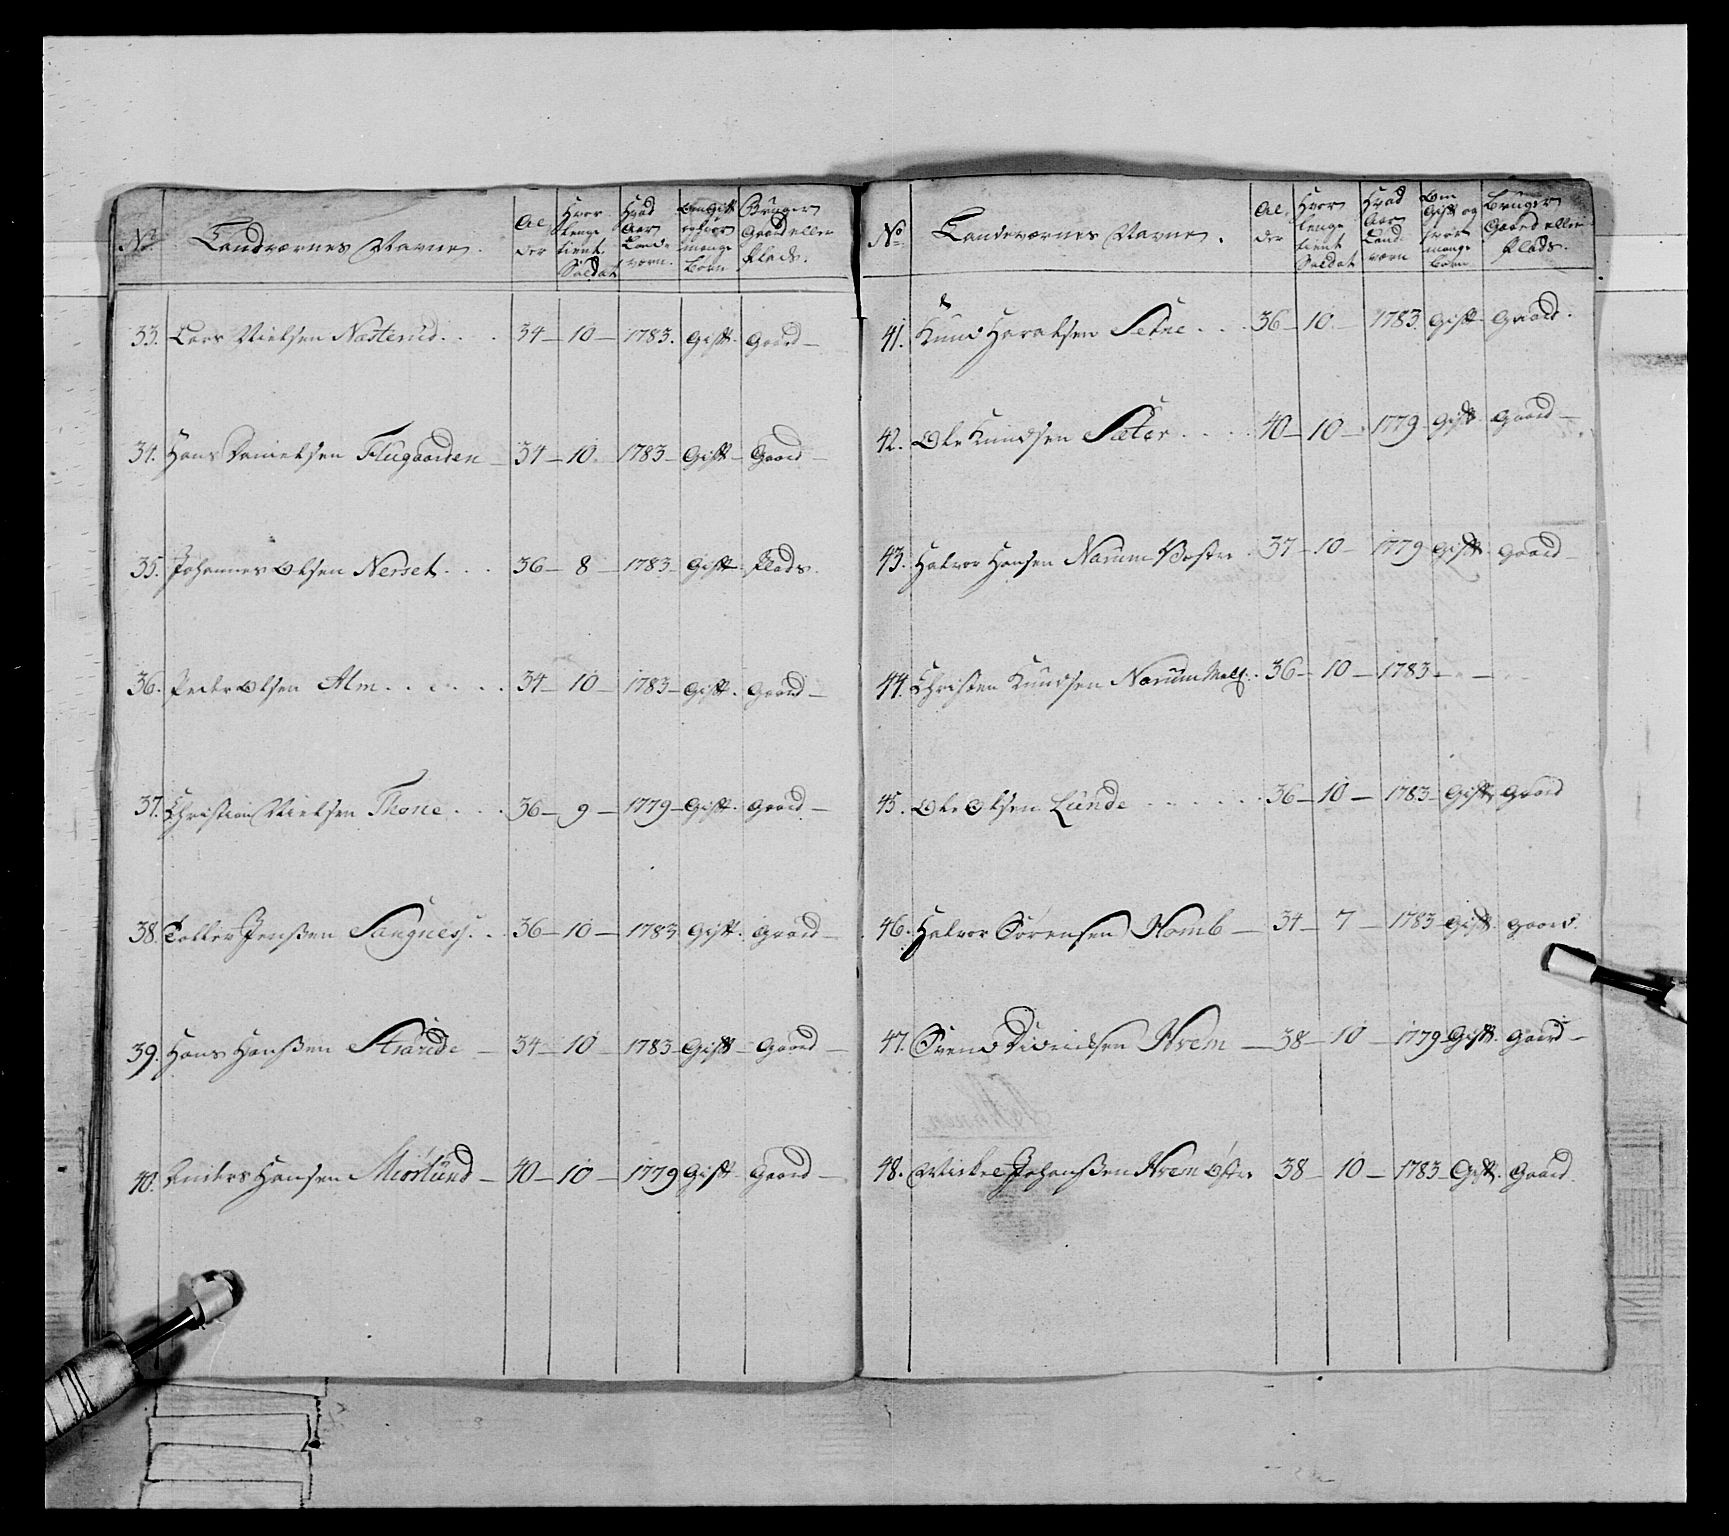 No Landværnes Navne. Al der Hvor lenge tient Soldat Hvad Aar Lande værn. Om Gift og hvor mange Børn Bruger Gaard eller Plads.
33. Lars Nielsen Nasterud . . . 34 – 10 – 1783. Gift. Gaard –
34. Hans Danielsen Flugaarden – 34 – 10. 1783 – Gift – Gaard –
35. Johannes Olsen Nerset . . . 36 – 8 – 1783. Gift – Plads.
36. Peder Olsen Alm . . . . . . 34 – 10 – 1783 – Gift. Gaard –
37. Christian Nielsen Thone . . . 36 – 9 – 1779 – Gift. Gaard –
38. Jensen . . 36 – 10 – 1783 Gift. Gaard –
39. Hans Hanssen Strande – 34 – 10 – 1783 – Gift – Gaard –
40. Anders Hansen Miørlund – 40 – 10 – 1779 Gift. Gaard –
No. Landeværnes Navne. Al der Hvor lenge tient Soldat Hvad Aar Land- værn Om Gift og hvor mange Børn Bruger Gaard eller Plads.
41. Knud Haralsen Setne . . . 36 – 10. – 1783. Gift – Gaard.
42. Ole Knudsen Sæter . . . . 40 – 10 – 1779 – Gift Gaard –
43. Halvor Hansen Narum Vestre . 37 – 10 – 1779 – Gift. Gaard –
44. Christen Knudsen Narum . 36 – 10 – 1783 – . –
45. Ole Olsen Lunde . . . . . . 36 – 10 – 1783 – Gift Gaard
46. Halvor Sørensen Homb – 34 – 7 – 1783 – Gift. Gaard.
47. Svend Hrem – 38 – 10 – 1779 – Gift. Gaard –
48. Mickel Johanssen Hrem Østre 38 – 10 – 1783 – Gift. Gaard.